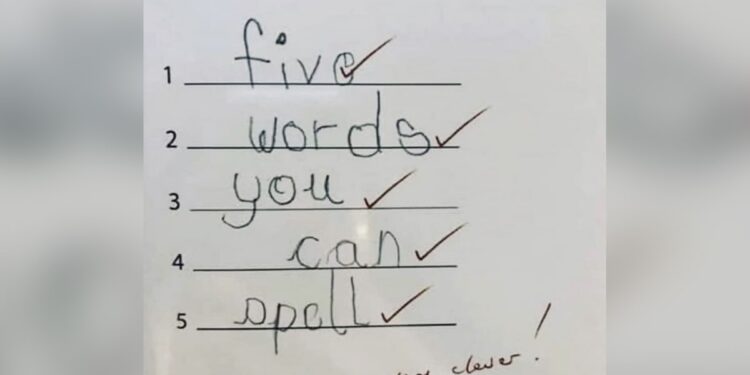 1 five
2 words
3 you
4 can
5 spell
clever!